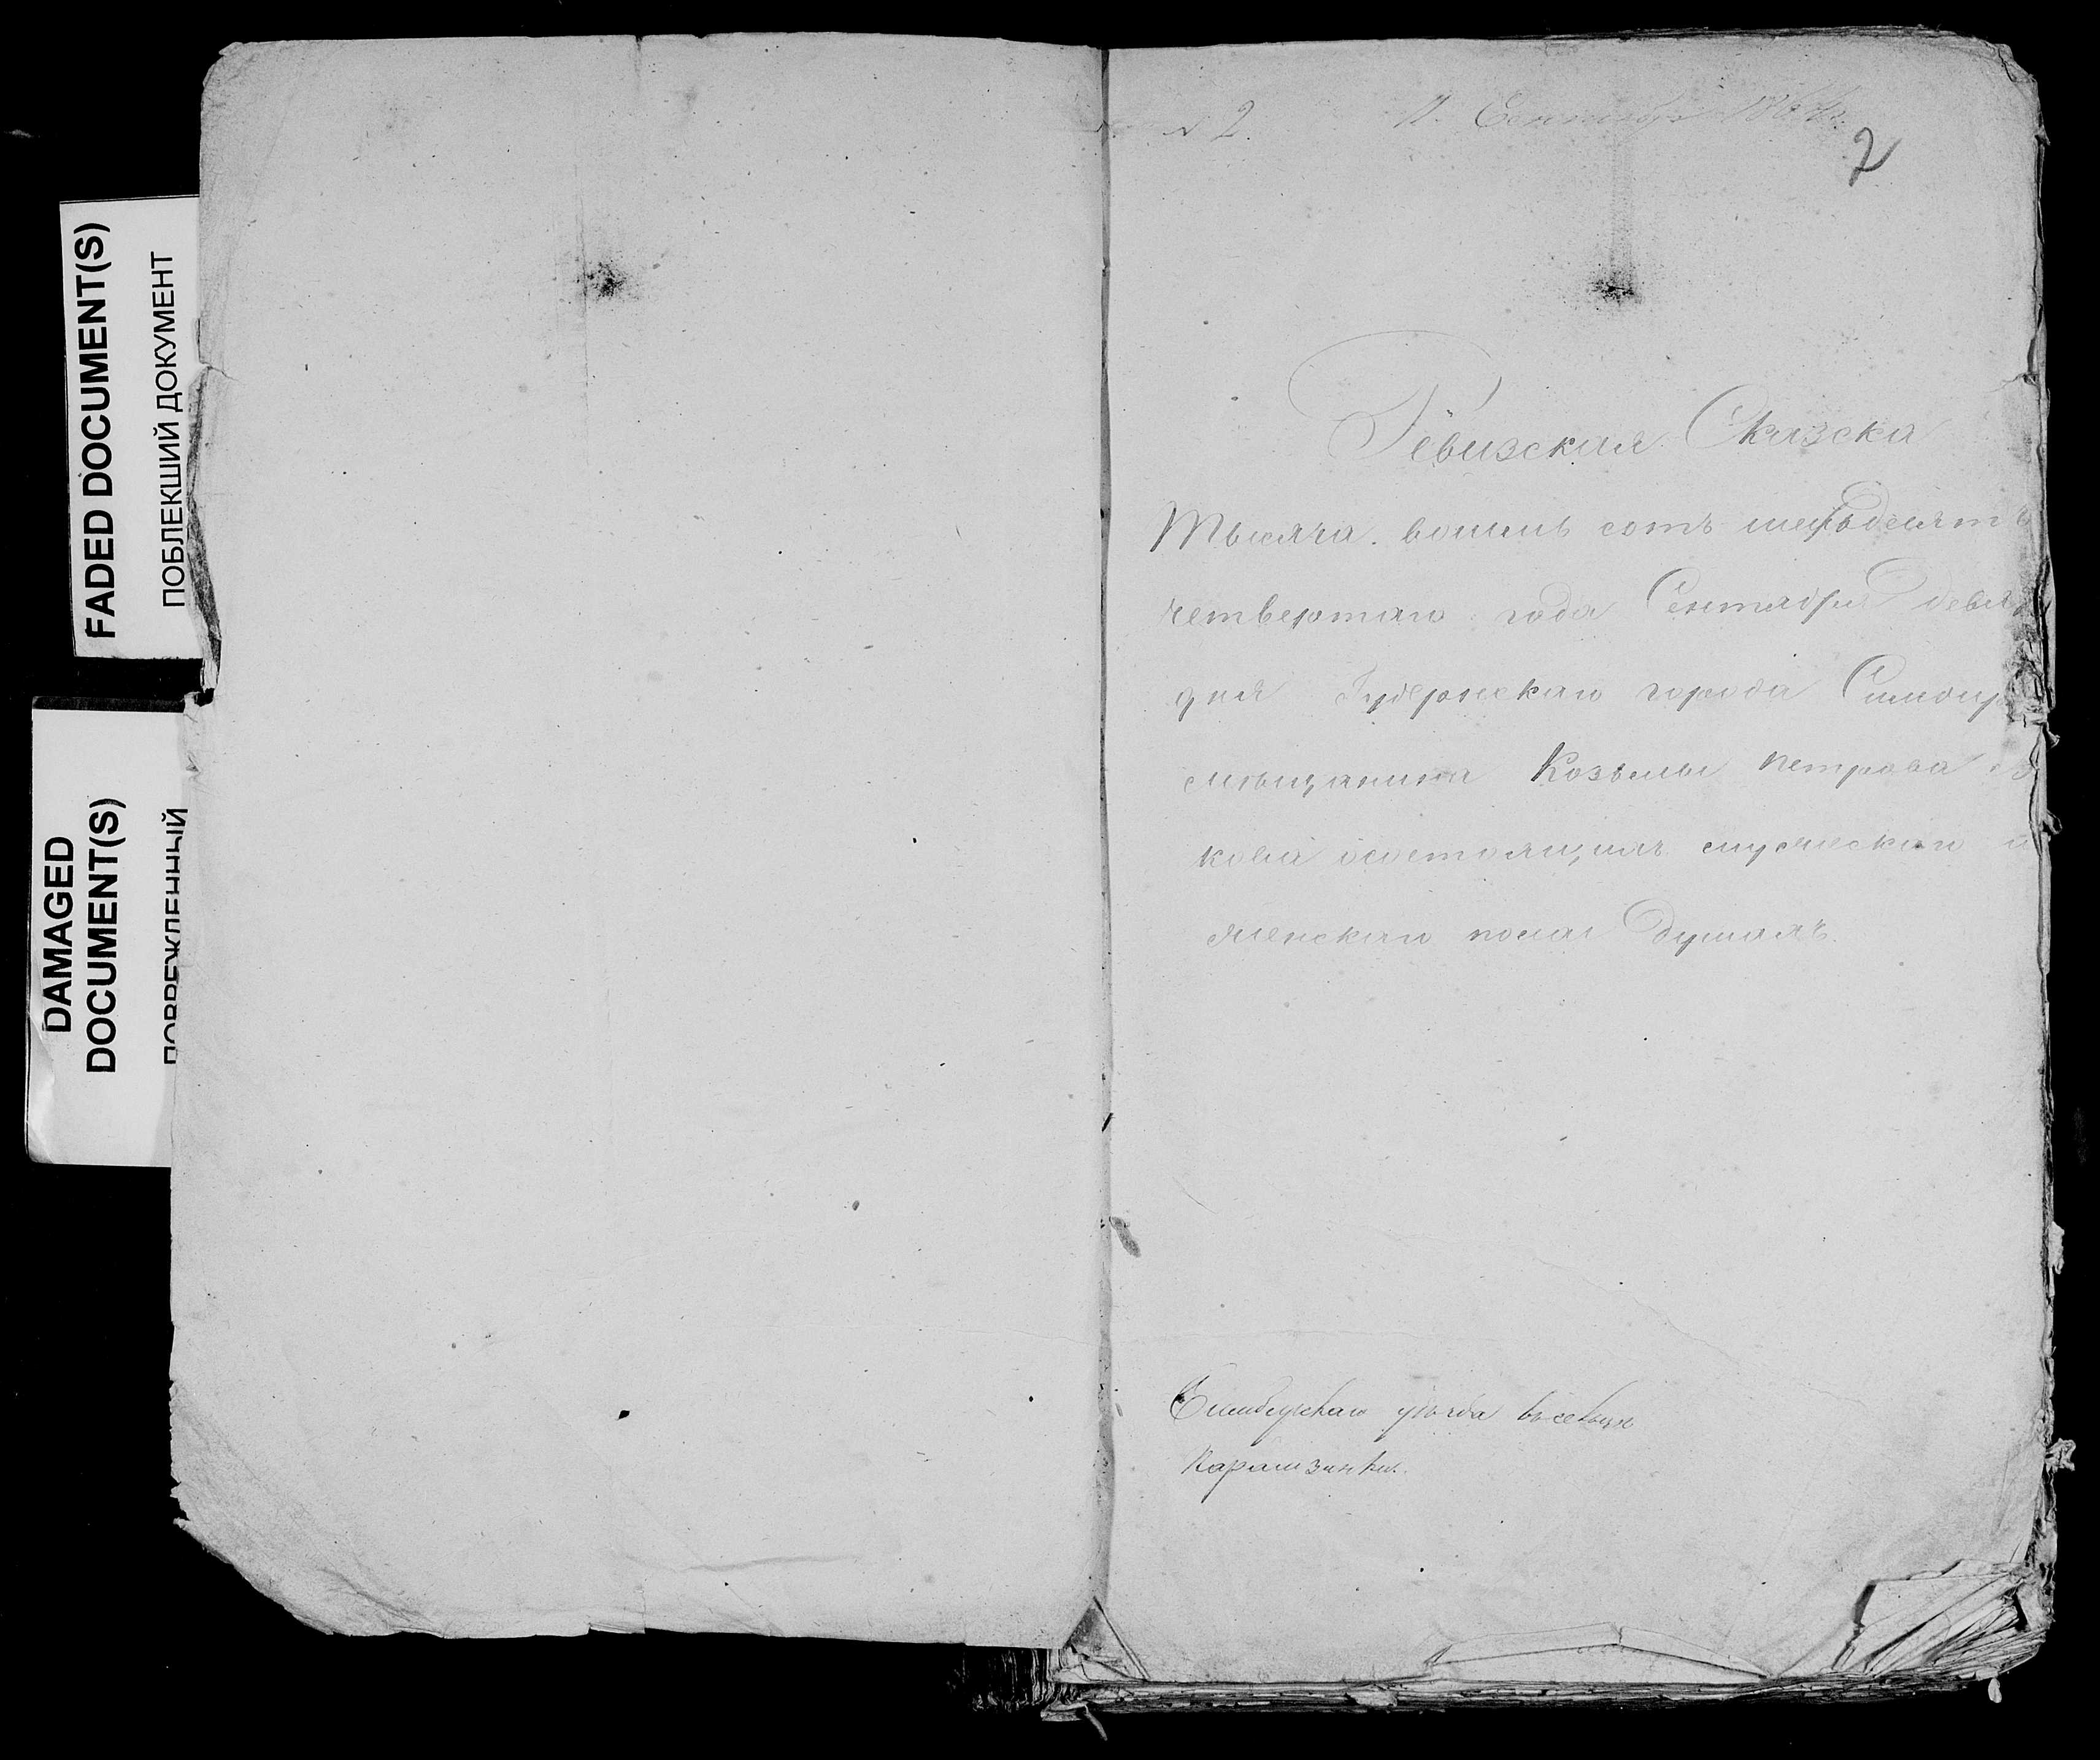 FADED DOCUMENT(S)
ПОБЛЕКШИЙ ДОКУМЕНТ
DAMAGED
DOCUMENT(S)
ПОВРЕЖДЕННЫЙ
№ 2. 11. Сентября 1864 г.
2
Ревизская Сказска
Тысяча. восемь сотъ шестьдесятъ
четвертаго года Сентября девя
дня Губернскаго города Симбир
мѣщанина Козьмы петрова
кова осостоящихъ мужескаго и
женскаго пола Душахъ.
Симбирскаго уѣзда
Карамзинки.